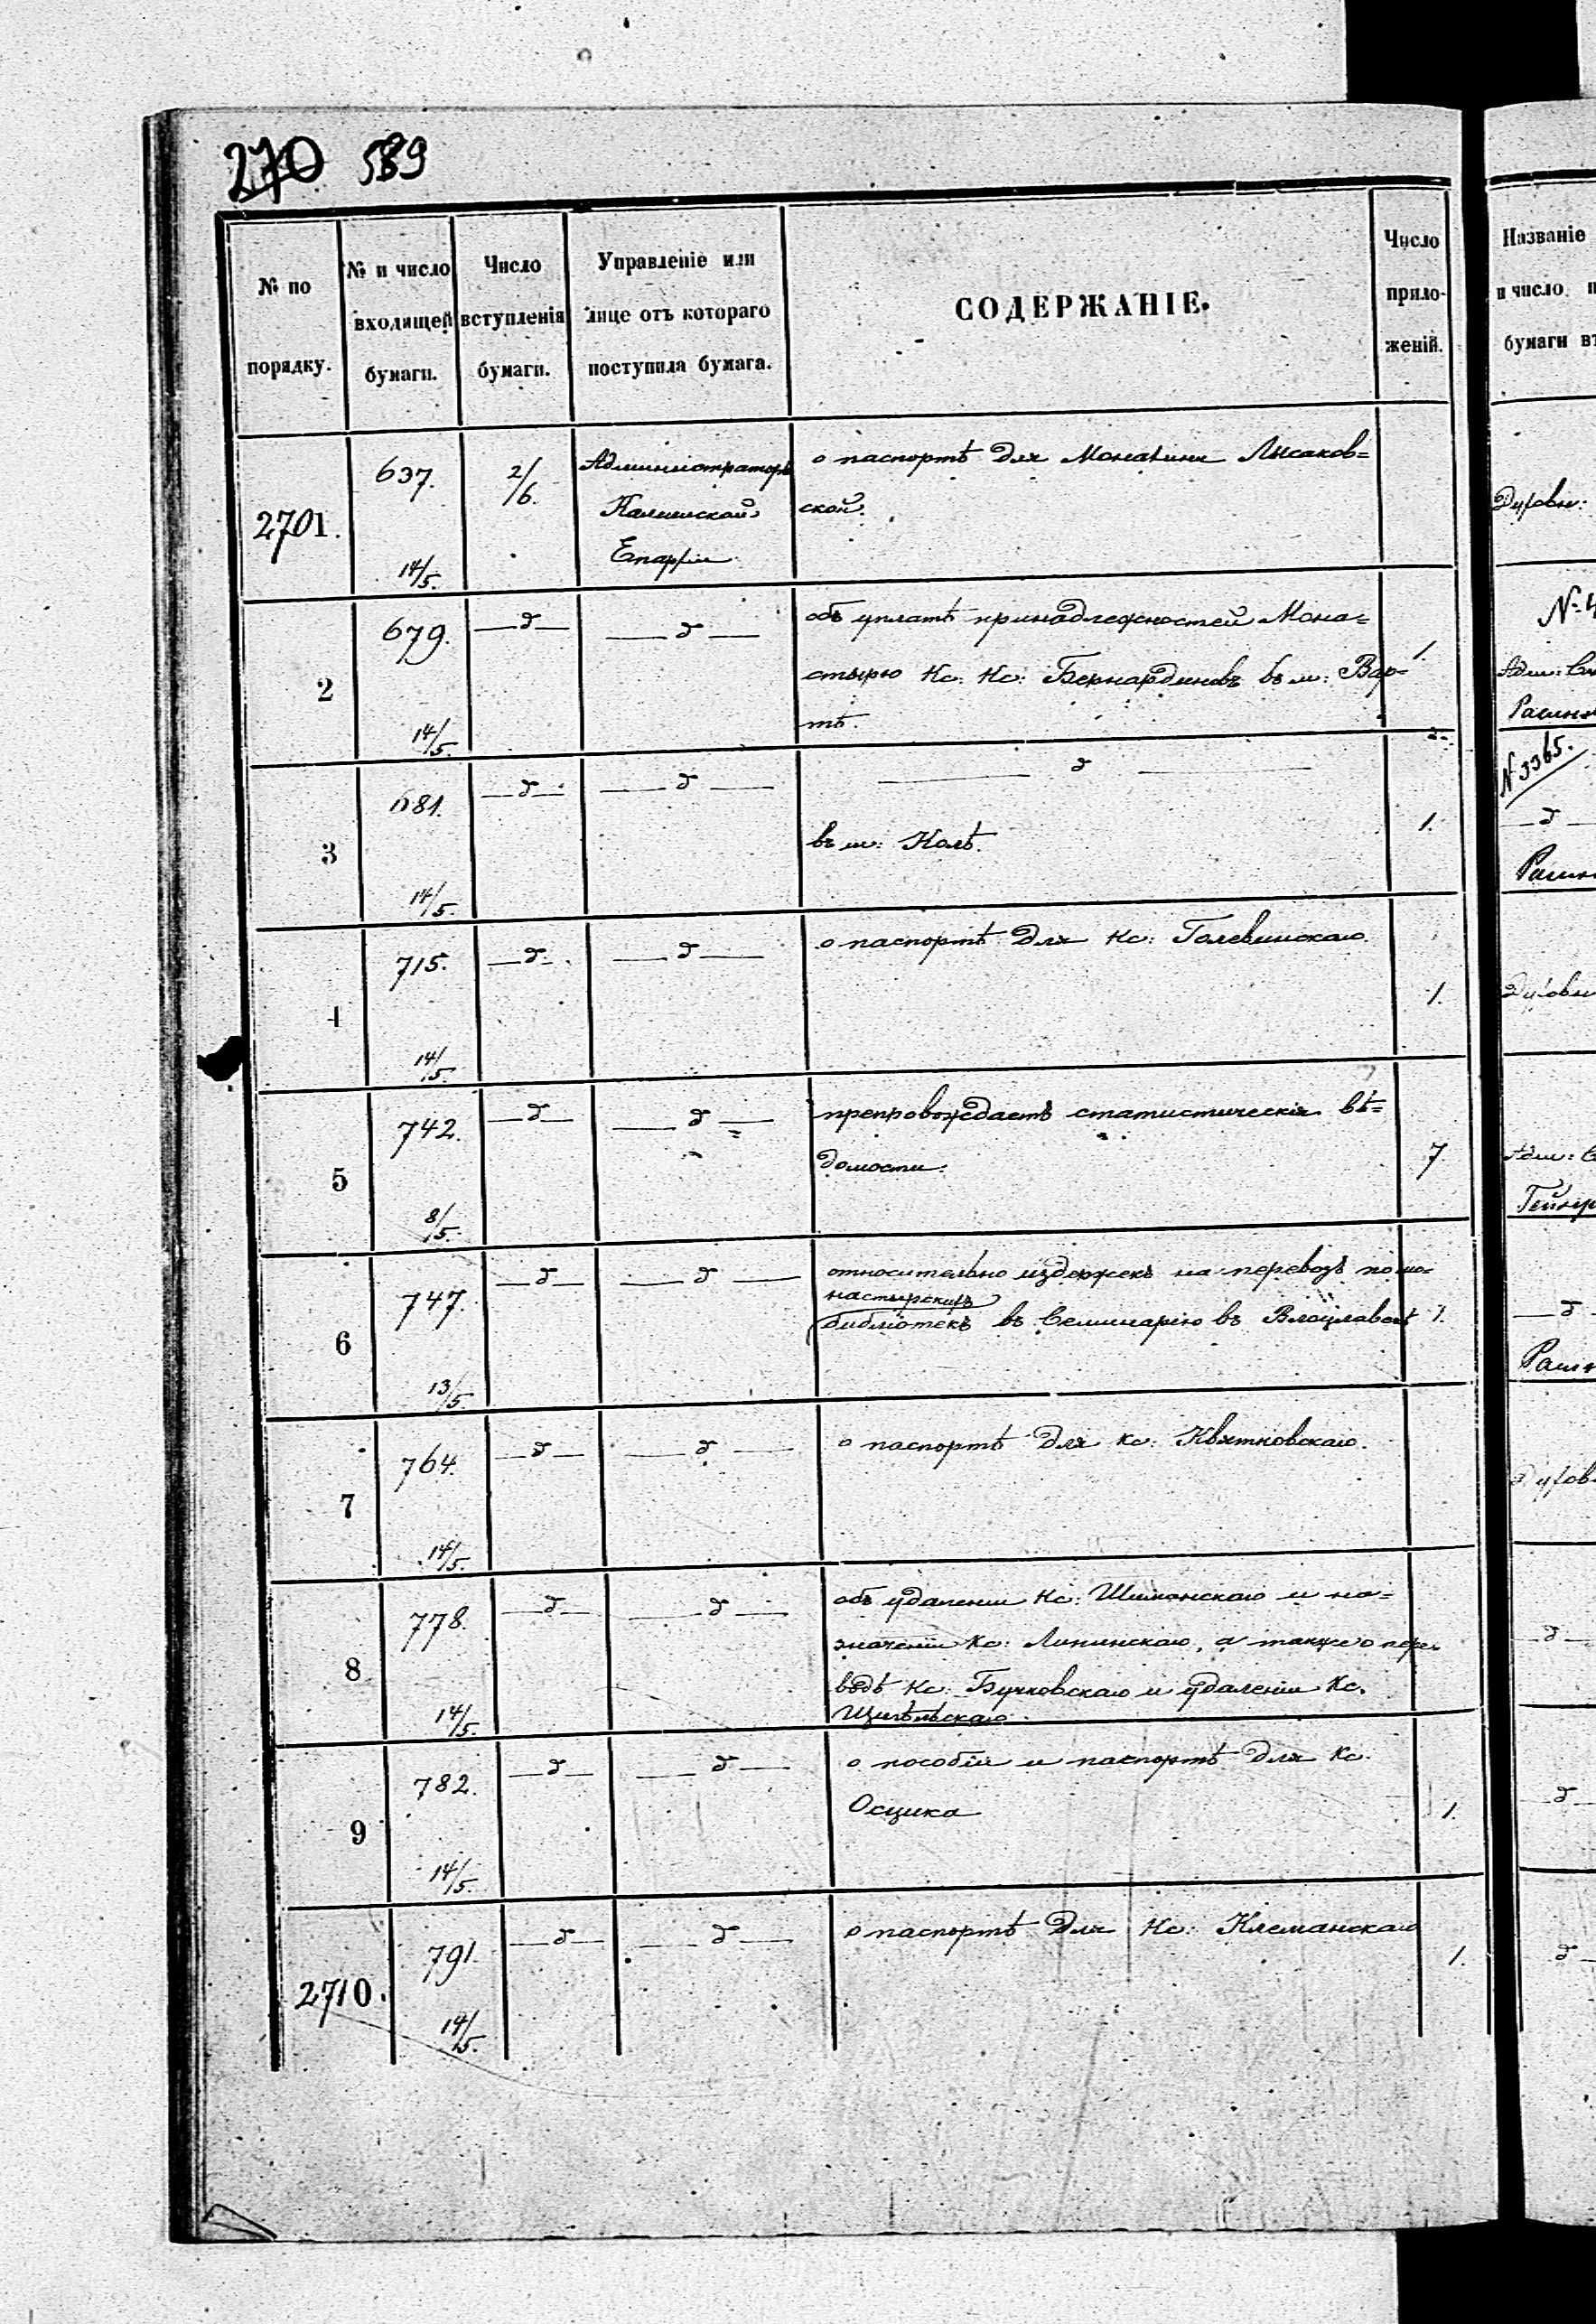 270 589
№ по порядку.
№ и число входящей бумаги.
Число вступленія бумаги.
Управленіе или лице отъ котораго поступила бумага.
СОДЕРЖАНІЕ.
Число прило- женій.
Названіе
и число
бумаги
2701.
637.
14/5.
2/6.
Администраторъ
Калишской
Епархіи
о паспортѣ для Монахини Лысаков=
ской.
Духовн:
2
679.
14/5.
—д—
—д—
объ уплатѣ принадлежностей Мона=
стырю Кс: Кс: Бернардиновъ въ м: Вар=
тѣ.
1.
№ 4
Адм:
3
681.
14/5.
—д—
—д—
—д—
въ м: Колѣ.
1.
N 3365.
—д—
4
715.
14/5.
—д—
—д—
о паспортѣ для Кс: Голевинскаго.
1.
Духовн
5
742.
8/5.
—д—
—д—
препровождаетъ статистическія вѣ=
домости.
7
Адм:
6
747.
13/5.
—д—
—д—
относительно издержекъ на перевозъ помо=
настырскихъ
библіотекъ въ Семинарію въ Влоцлавскѣ
1.
—д
7
764.
14/5.
—д—
—д—
о паспортѣ для Кс: Квятковскаго.
Духов
8
778.
14/5.
—д—
—д—
объ удаленіи Кс: Шиманскаго и на=
значеніи Кс: Липинскаго, а также о пере=
водѣ Кс: Бучковскаго и удаленіи Кс.
—д—
9
782.
14/5.
—д—
—д—
о пособіи и паспортѣ для Кс.
Осцика
1.
д
2710.
791.
14/5.
—д—
—д—
о паспортѣ для Кс: Клеманскаго
1.
д